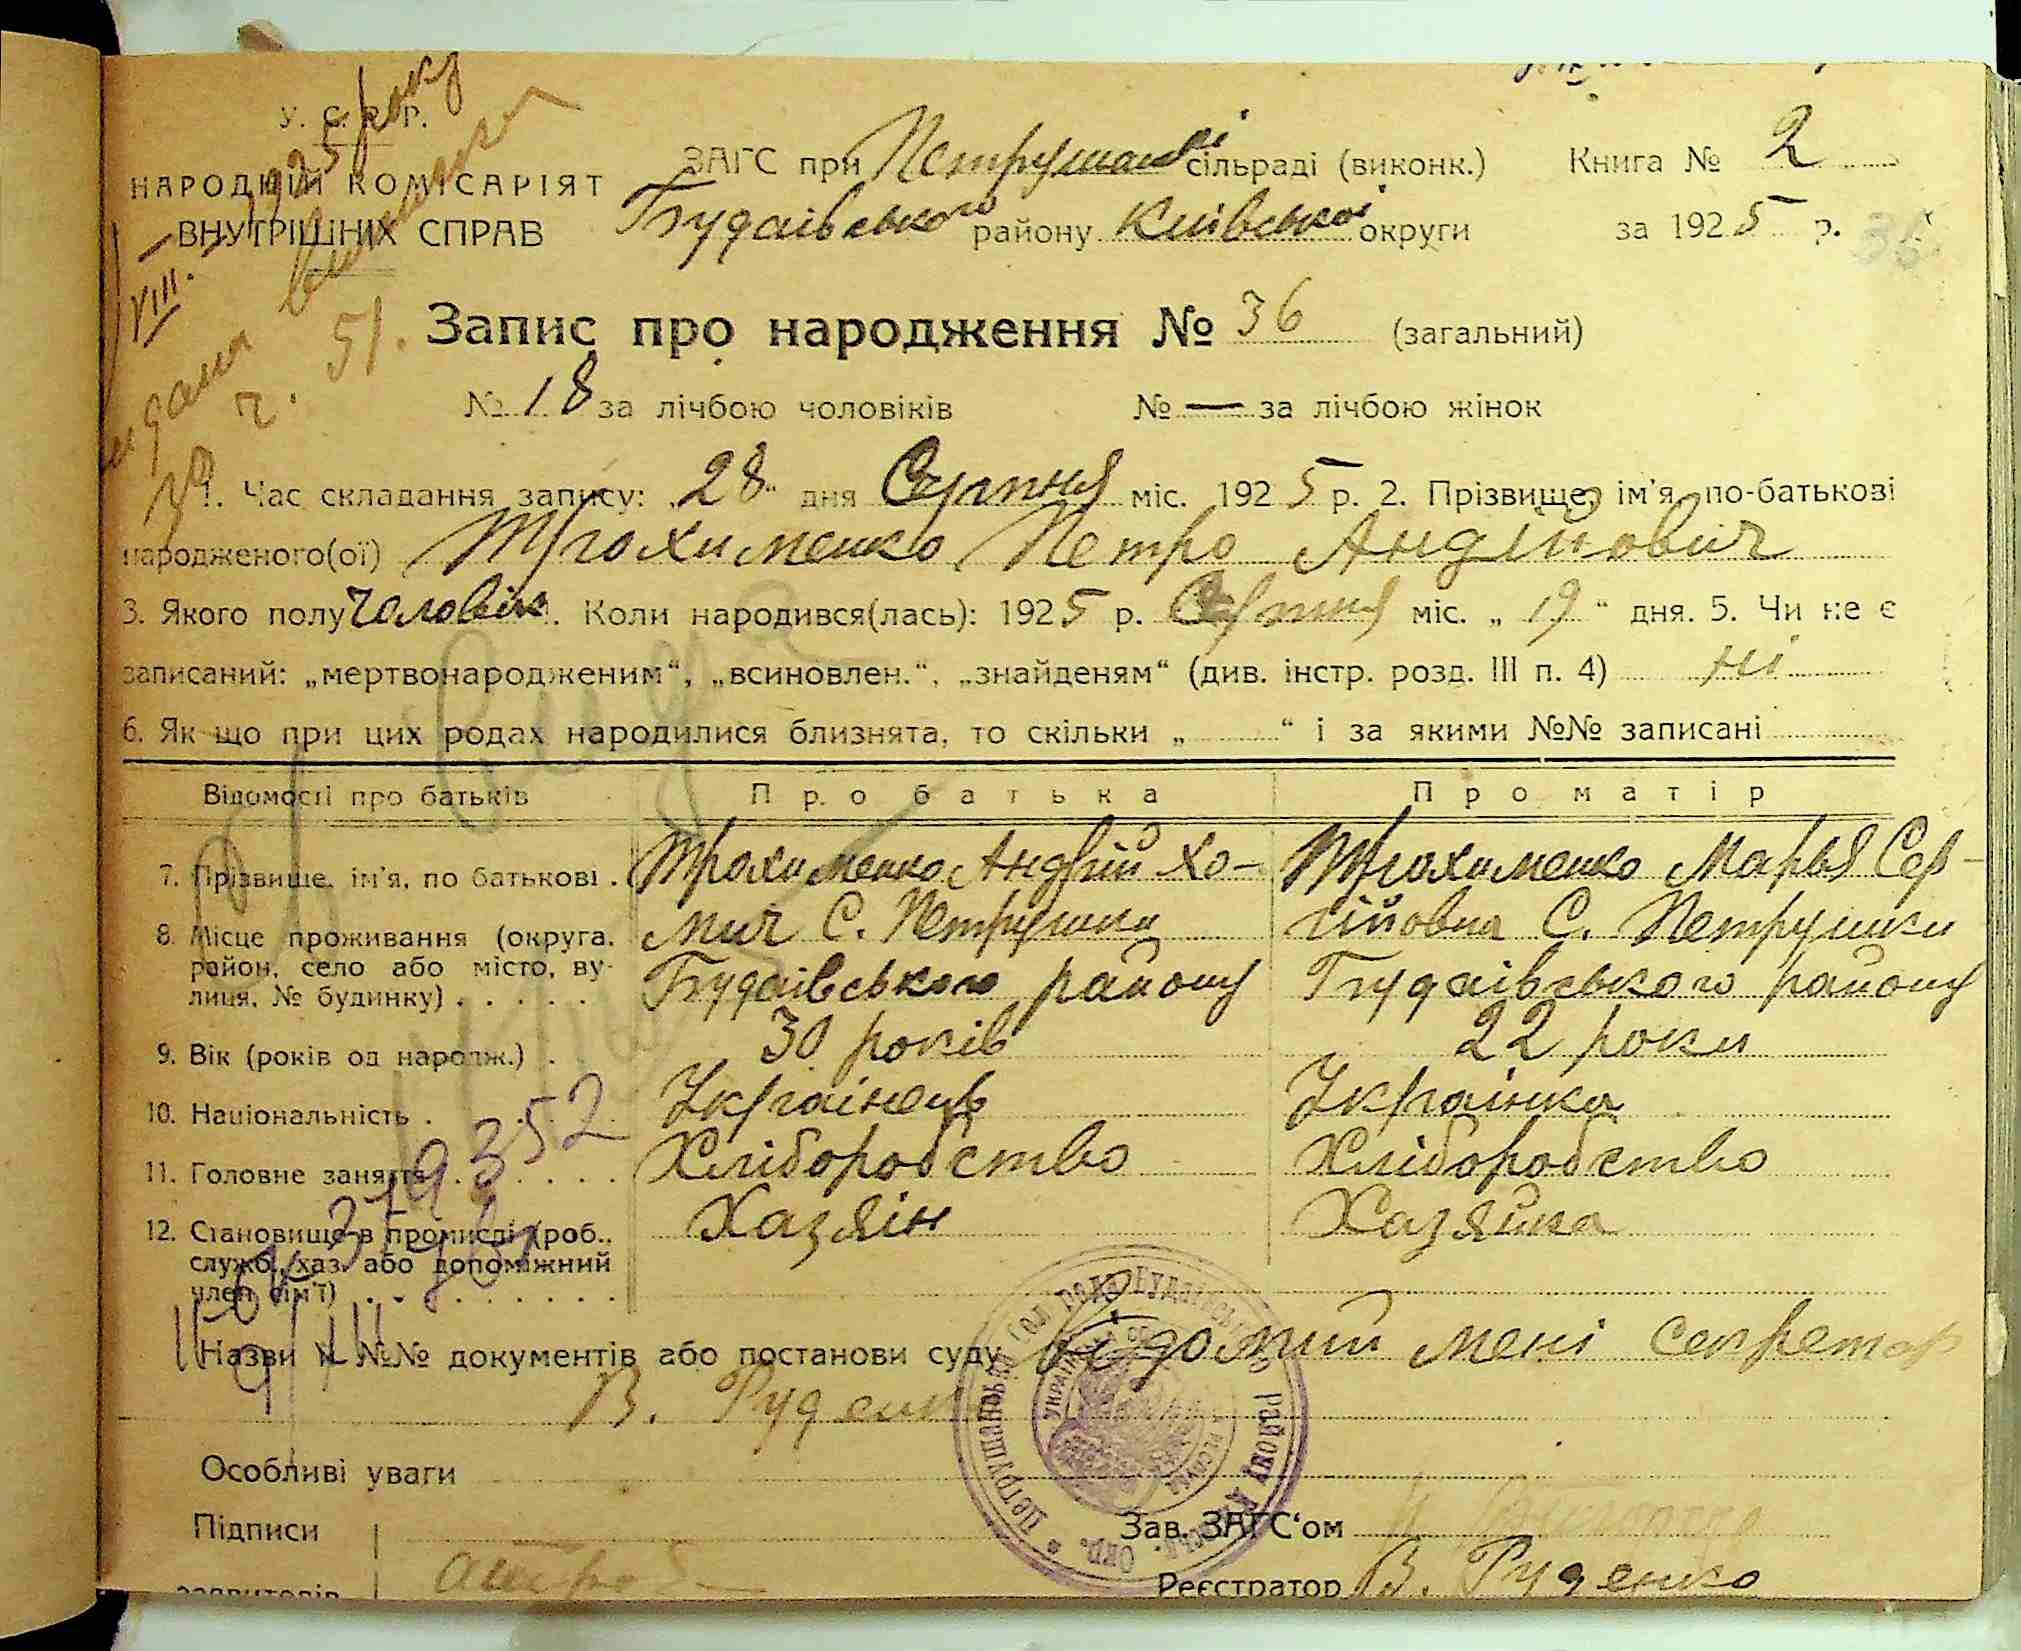 У. С. Р. Р.
НАРОДНІЙ КОМІСАРІЯТ
ВНУТРІШНІХ СПРАВ
ЗАГС при Петрушанскі сільраді (виконк.) Книга № 2
Будаівського району Київської округи за 1925 р.
36
VIII. 1925 року
видана виписка
ч. 51.
Запис про народження № 36 (загальний)
№ 18 за лічбою чоловіків № — за лічбою жінок
1. Час складання запису: „28“ дня Серпня міс. 1925 р. 2. Прізвище, ім'я, по-батькові
народженого(ої) Трохименко Петро Андійович
3. Якого полу Чоловік. Коли народився(лась): 1925 р. Серпня міс. „19“ дня. 5. Чи не є
записаний: „мертвонародженим“, „всиновлен.“, „знайденям“ (див. інстр. розд. III п. 4) ні
6. Як що при цих родах народилися близнята, то скільки „ “ і за якими №№ записані
Відомості про батьків Про батька Про матір
7. Прізвище, ім'я, по батькові . Трохименко Андрій Хо- Трохименко Марья Сер-
8. Місце проживання (округа, мич С. Петрушки гійовна С. Петрушки
район, село або місто, ву-
лиця, № будинку) . . . . . Будаівського району Будаівського району
9. Вік (років од народж.) . 30 років 22 роки
10. Національність . Українець Українка
11. Головне заняття . . . . . Хліборобство Хліборобство
12. Становище в промислі (роб., Хазяін Хазяйка
служб., хаз. або допоміжний
член сім'ї) . . . . . . . . .
352
Назви й №№ документів або постанови суду Відомий мені секретар
В. Руденко
Петрушанська Сіл. Рада Будаівського району Київськ. Окр.
Особливі уваги
Підписи Зав. ЗАГС'ом
заявителів Реєстратор В. Руденко